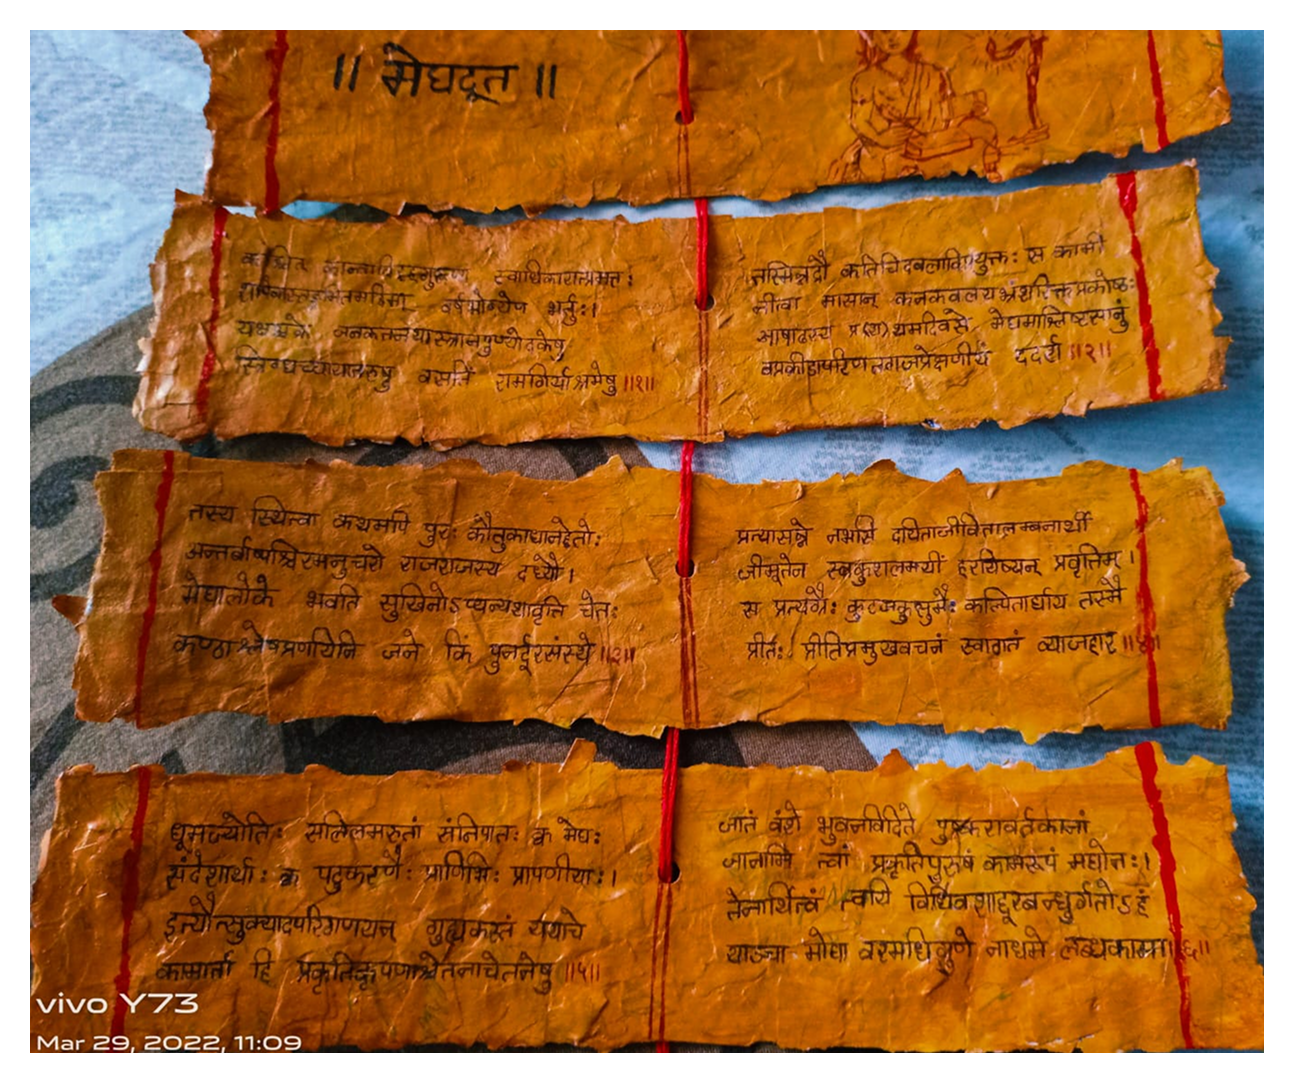 ॥ मेघदूत ॥
स्वाधिकारात्प्रमत्तः
वर्षभोग्येण भर्तुः।
यक्षश्चक्रे जनकतनयास्नानपुण्योदकेषु
स्निग्धच्छायातरुषु वसतिं रामगिर्याश्रमेषु ॥१॥
तस्मिन्नद्रौ कतिचिदबलाविप्रयुक्तः स कामी
नीत्वा मासान् कनकवलयभ्रंशरिक्तप्रकोष्ठः
आषाढस्य मेघमाश्लिष्टसानुं
ददर्श ॥२॥
तस्य स्थित्वा कथमपि पुरः कौतुकाधानहेतोः
अन्तर्बाष्पश्चिरमनुचरो राजराजस्य दध्यौ।
मेघालोके भवति सुखिनोऽप्यन्यथावृत्ति चेतः
कण्ठाश्लेषप्रणयिनि जने किं पुनर्दूरसंस्थे ॥३॥
प्रत्यासन्ने नभसि दयिताजीवितालम्बनार्थी
जीमूतेन स्वकुशलमयीं हरयिष्यन् प्रवृत्तिम्।
स प्रत्यग्रैः कुटजकुसुमैः कल्पितार्घाय तस्मै
प्रीतः प्रीतिप्रमुखवचनं स्वागतं व्याजहार ॥४॥
धूमज्योतिः सलिलमरुतां संनिपातः क्व मेघः
संदेशार्थाः क्व पटुकरणैः प्राणिभिः प्रापणीयाः।
इत्यौत्सुक्यादपरिगणयन् गुह्यकस्तं ययाचे
कामार्ता हि प्रकृतिकृपणाश्चेतनाचेतनेषु ॥५॥
जातं वंशे भुवनविदिते पुष्करावर्तकानां
जानामि त्वां प्रकृतिपुरुषं कामरूपं मघोनः।
तेनार्थित्वं त्वयि विधिवशाद्दूरबन्धुर्गतोऽहं
याञ्चा मोघा वरमधिगुणे नाधमे लब्धकामा ॥६॥
vivo Y73
Mar 29, 2022, 11:09